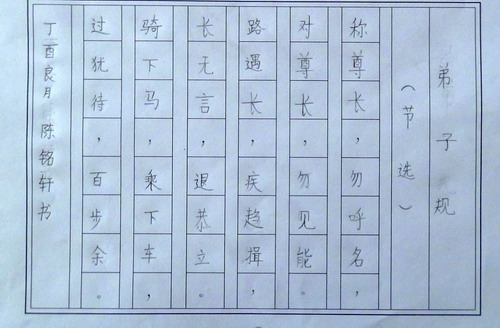 弟子规
（节选）
称尊长，勿呼名，
对尊长，勿见能。
路遇长，疾趋揖，
长无言，退恭立。
骑下马，乘下车，
过犹待，百步余。
丁酉良月 陈铭轩书